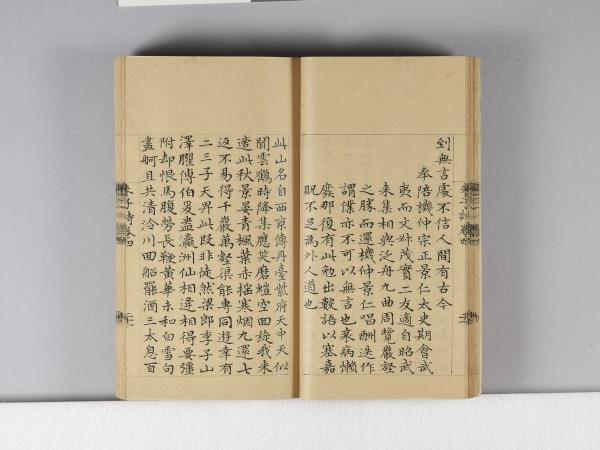 到無言處不信人間有古今
奉陪機仲宗正景仁太史期會武
夷而文叔茂實二友適自昭武
来集相與泛舟九曲周覽巖壑
之勝而還機仲景仁唱酬迭作
謂僕亦不可以無言也衰病懒
廢那復有此勉出數語以塞嘉
貺不足為外人道也
此山名自西京傳丹臺紫府天中天似
聞雲鶴時降集應笑磨蟻空回旋我来
適此秋景晏青楓葉赤摇寒烟九還七
返不易得千巖萬壑渠能專同遊幸有
二三子天畀此段非徒然梁郎季子山
澤臞傅伯爰盎瀛洲仙相逢相得要彊
附却恨馬腹勞長鞭黄華未和白雪句
畫舸且共清泠川回船罷酒三太息百